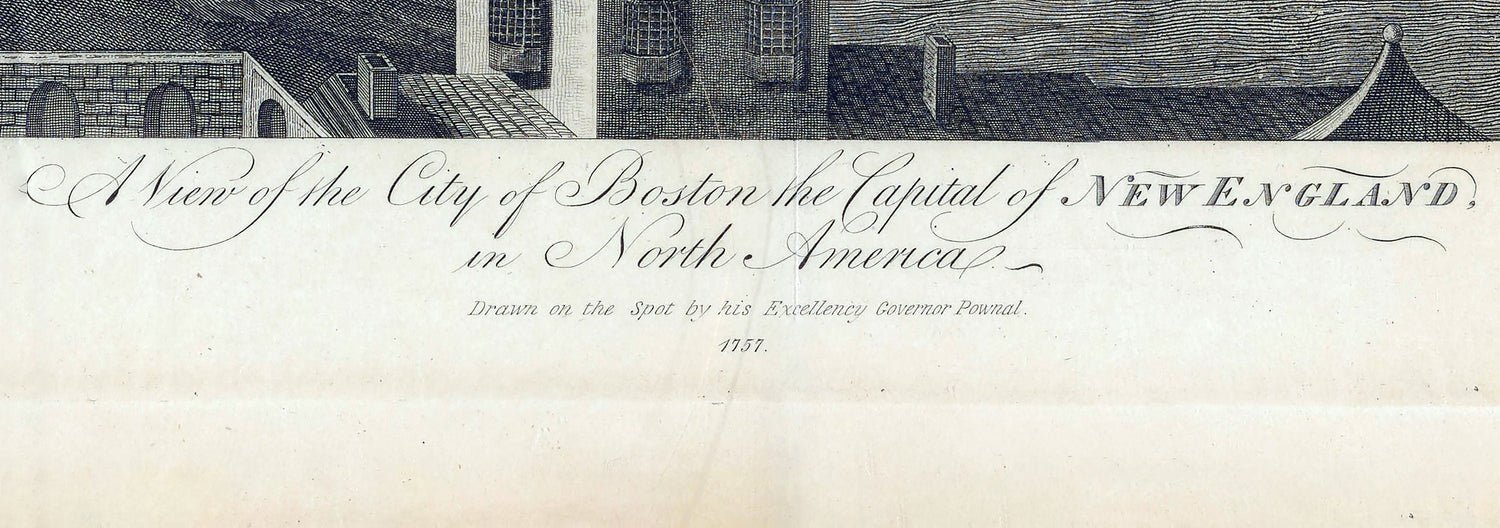 A View of the City of Boston the Capital of NEW ENGLAND,
in North America.
Drawn on the Spot by his Excellency Governor Pownal.
1757.